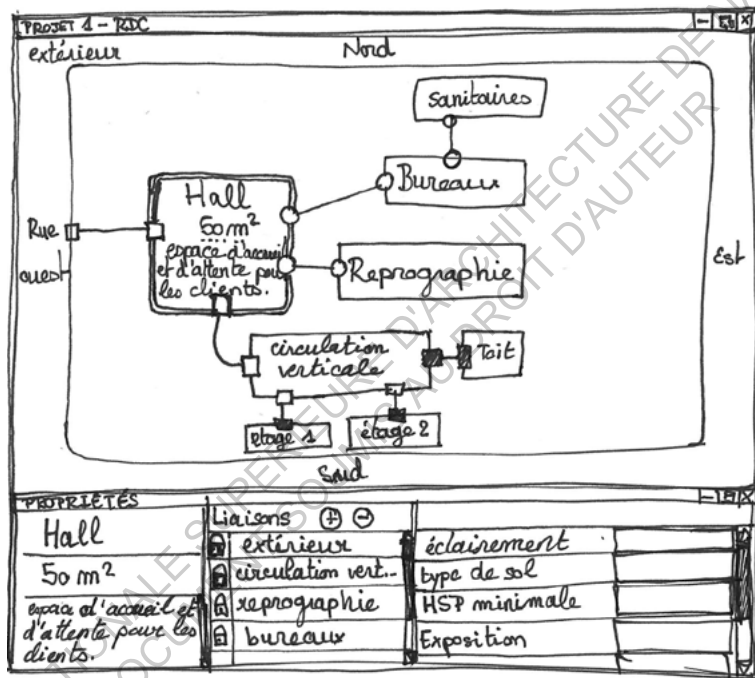 PROJET 1 - RDC
extérieur
Nord
sanitaires
Bureaux
Hall
50 m²
espace d'accueil
et d'attente pour
les clients.
Rue
ouest
Reprographie
Est
circulation
verticale
Toit
étage 1
étage 2
Sud
PROPRIÉTÉS
Hall
50 m²
espace d'accueil et
d'attente pour les
clients.
Liaisons + -
extérieur
circulation vert..
reprographie
bureaux
éclairement
type de sol
HSP minimale
Exposition
IONALE SUPERIEURE D'ARCHITECTURE DE
DOCUMENT SOUMIS AU DROIT D'AUTEUR